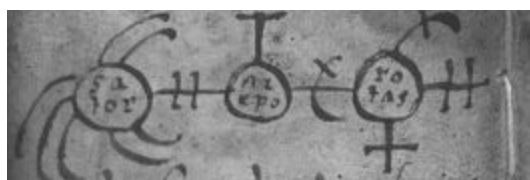 sa
tor
ar
epo
ro
tas